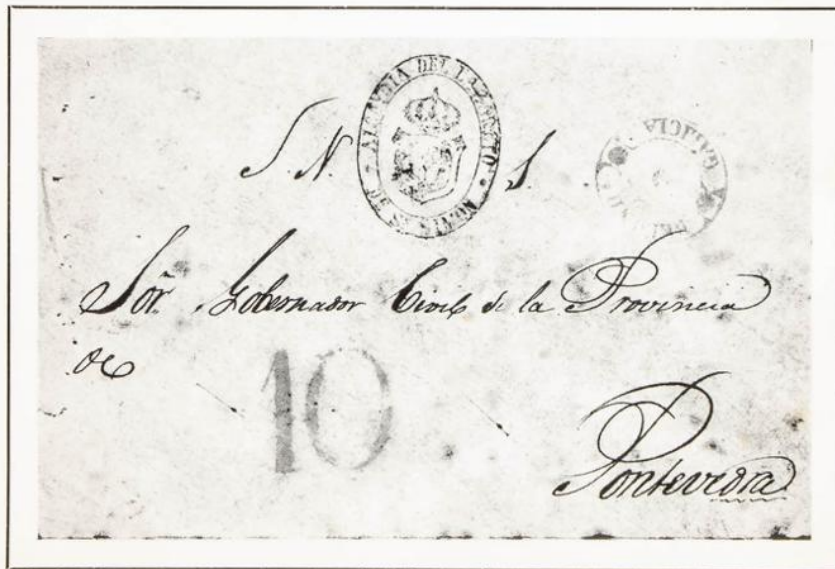 ALCAYDIA DEL LAZARETO
DE SN SIMON
S. N. S.
GALICIA
Sor. Gobernador Civil de la Provincia
de
10
Pontevedra